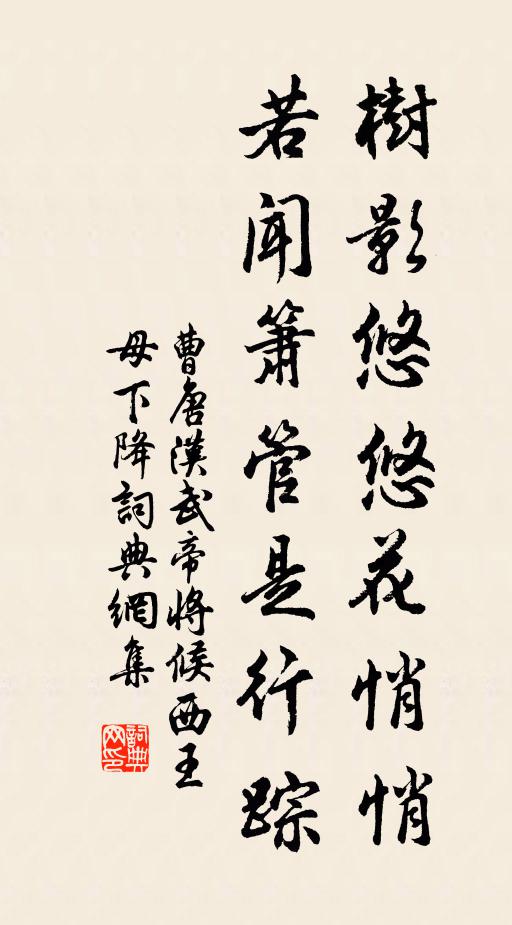 樹影悠悠花悄悄
若聞簫管是行踪
曹唐漢武帝將候西王
母下降詞典網集
詞典
网印